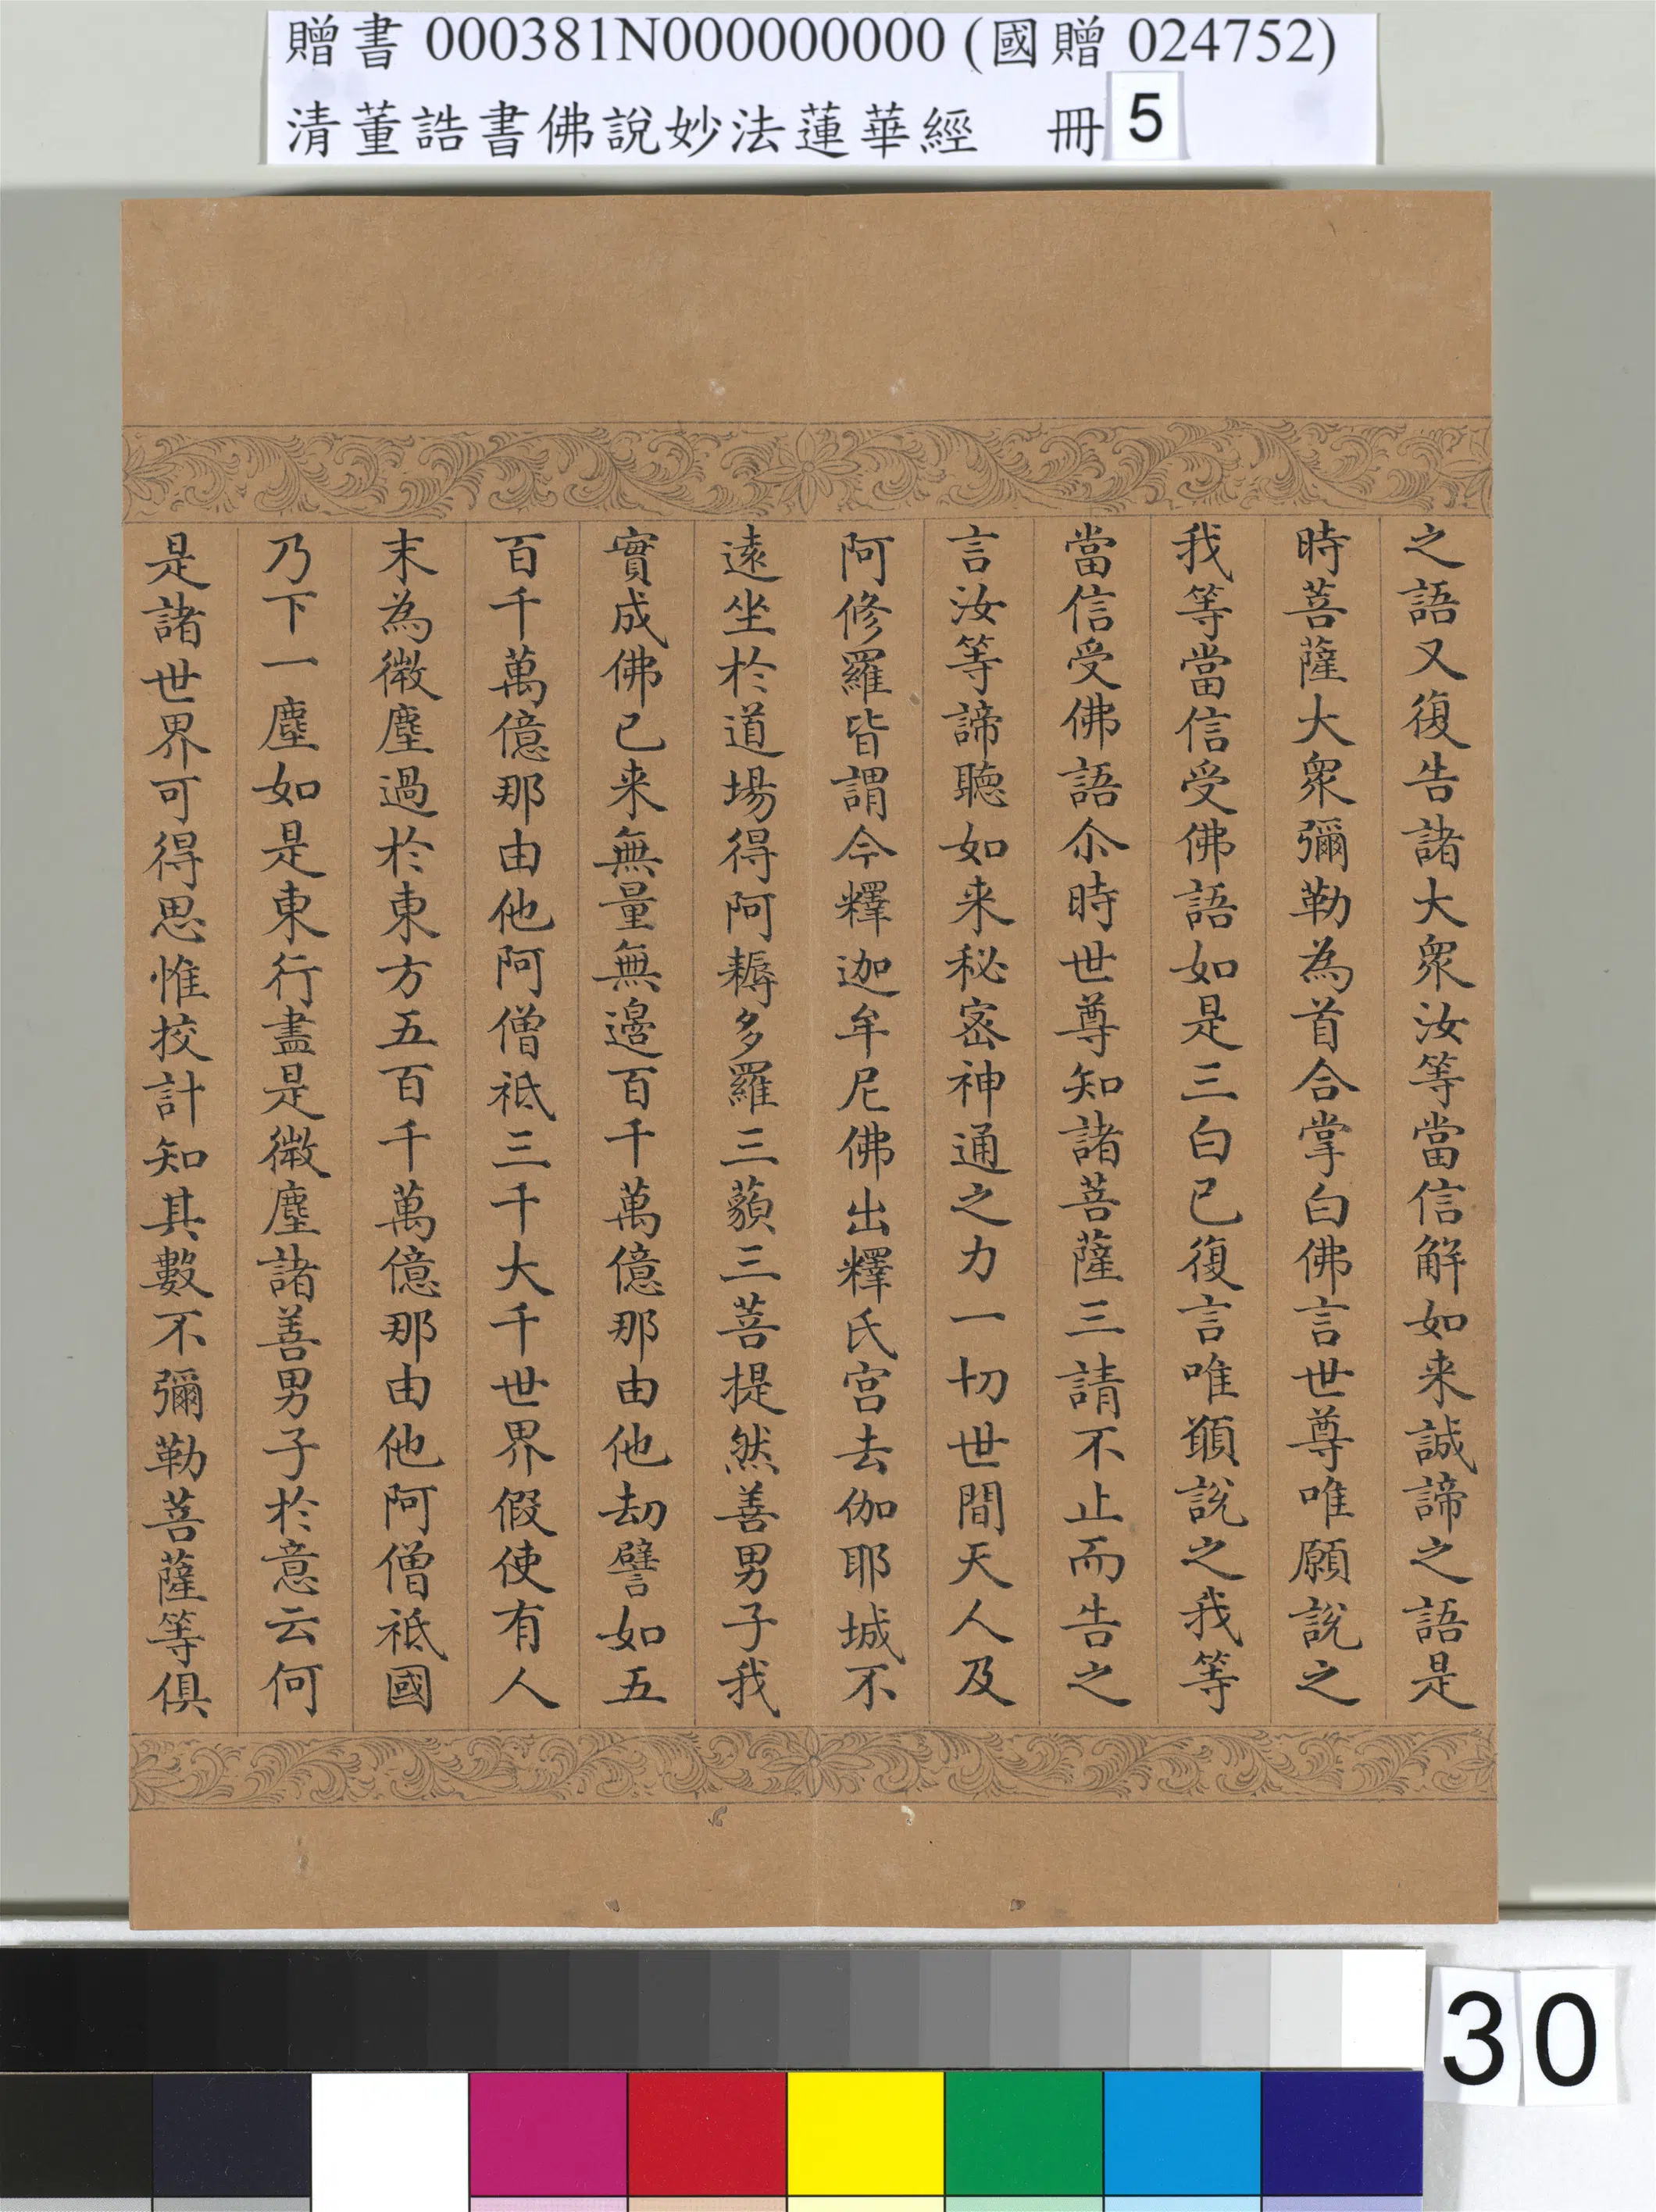 贈書 000381N000000000 (國贈 024752)
清董誥書佛說妙法蓮華經 冊 5
之語又復告諸大衆汝等當信解如来誠諦之語是
時菩薩大衆彌勒為首合掌白佛言世尊唯願說之
我等當信受佛語如是三白已復言唯願說之我等
當信受佛語尒時世尊知諸菩薩三請不止而告之
言汝等諦聽如来秘密神通之力一切世間天人及
阿修羅皆謂今釋迦牟尼佛出釋氏宮去伽耶城不
遠坐於道場得阿耨多羅三藐三菩提然善男子我
實成佛已来無量無邊百千萬億那由他劫譬如五
百千萬億那由他阿僧祇三千大千世界假使有人
末為微塵過於東方五百千萬億那由他阿僧祇國
乃下一塵如是東行盡是微塵諸善男子於意云何
是諸世界可得思惟挍計知其數不彌勒菩薩等俱
30